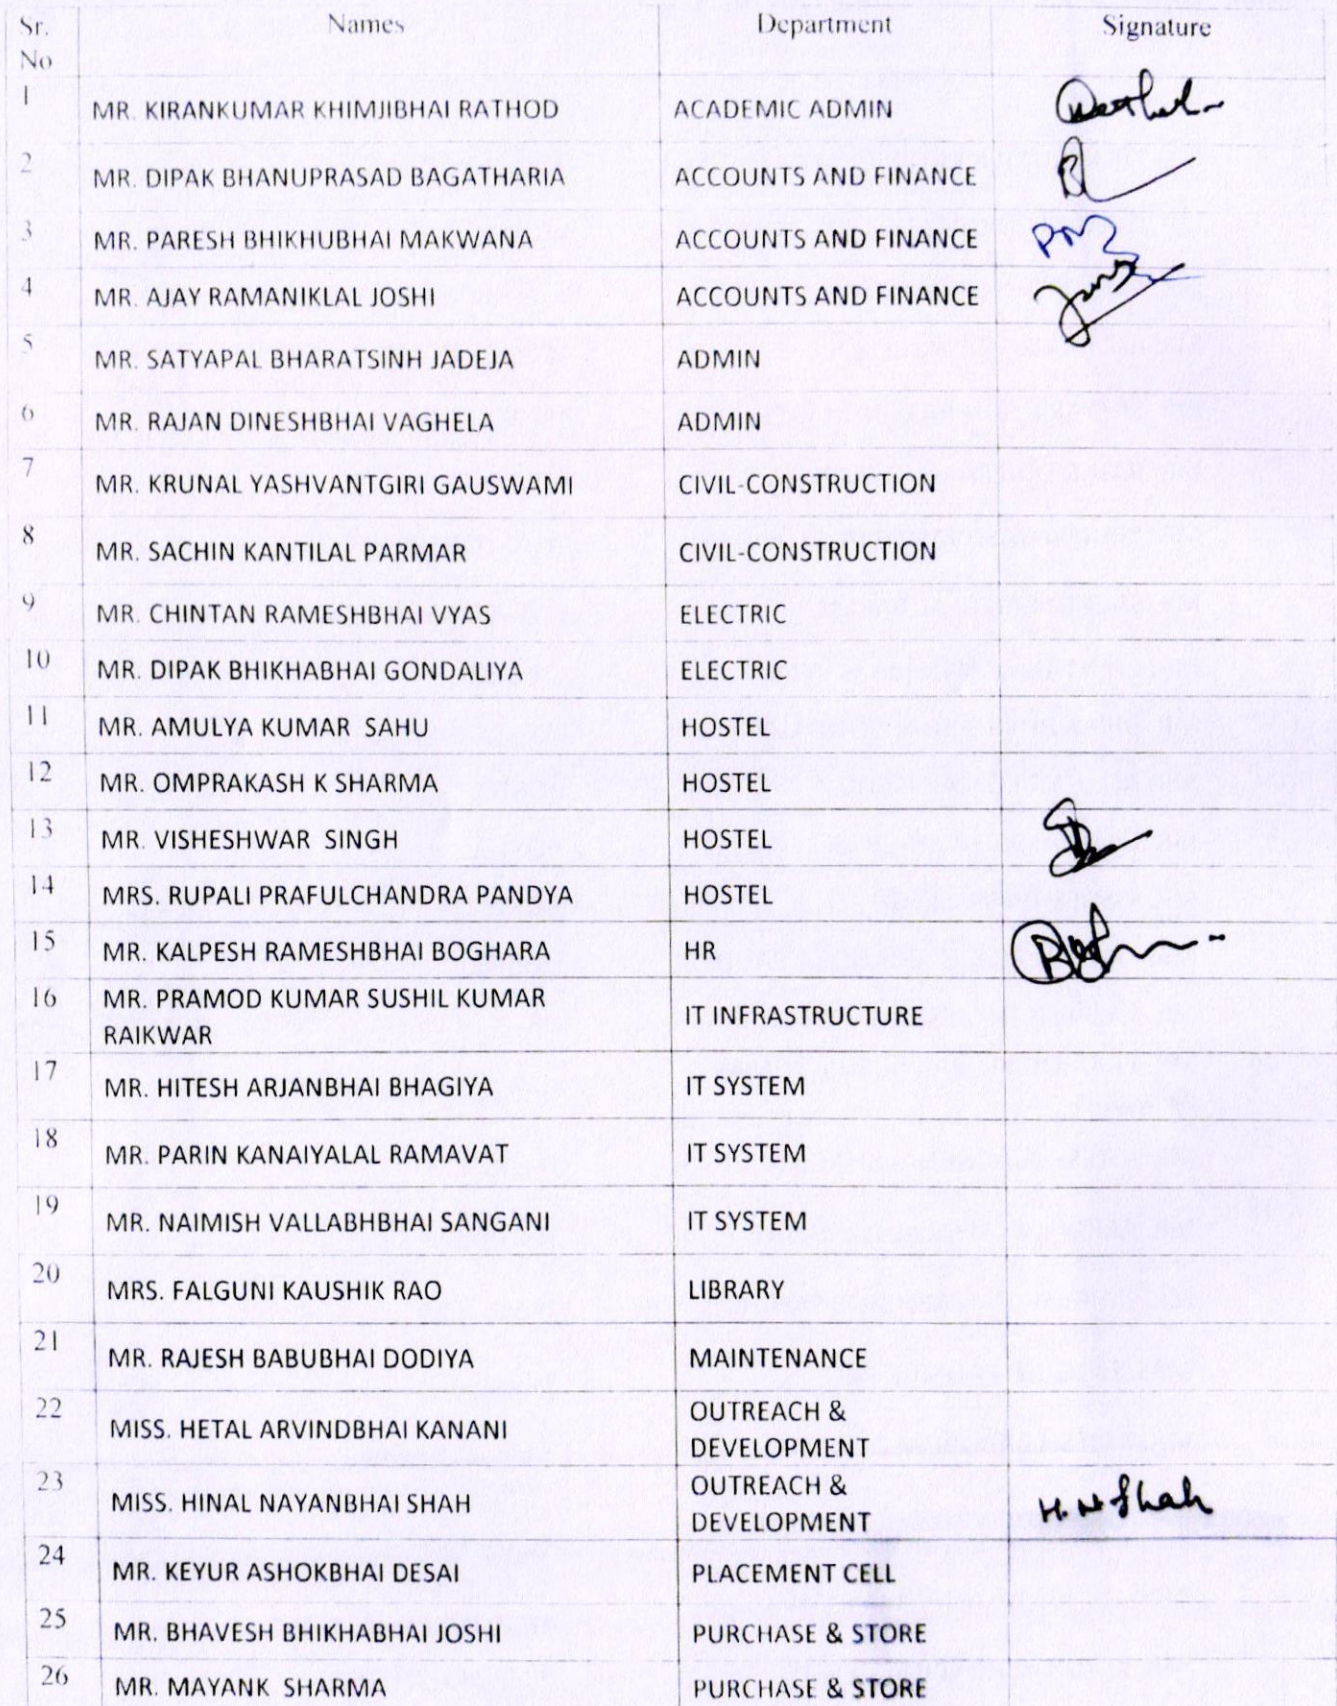 Sr. No Names Department Signature
1 MR. KIRANKUMAR KHIMJIBHAI RATHOD ACADEMIC ADMIN
2 MR. DIPAK BHANUPRASAD BAGATHARIA ACCOUNTS AND FINANCE
3 MR. PARESH BHIKHUBHAI MAKWANA ACCOUNTS AND FINANCE
4 MR. AJAY RAMANIKLAL JOSHI ACCOUNTS AND FINANCE
5 MR. SATYAPAL BHARATSINH JADEJA ADMIN
6 MR. RAJAN DINESHBHAI VAGHELA ADMIN
7 MR. KRUNAL YASHVANTGIRI GAUSWAMI CIVIL-CONSTRUCTION
8 MR. SACHIN KANTILAL PARMAR CIVIL-CONSTRUCTION
9 MR. CHINTAN RAMESHBHAI VYAS ELECTRIC
10 MR. DIPAK BHIKHABHAI GONDALIYA ELECTRIC
11 MR. AMULYA KUMAR SAHU HOSTEL
12 MR. OMPRAKASH K SHARMA HOSTEL
13 MR. VISHESHWAR SINGH HOSTEL
14 MRS. RUPALI PRAFULCHANDRA PANDYA HOSTEL
15 MR. KALPESH RAMESHBHAI BOGHARA HR
16 MR. PRAMOD KUMAR SUSHIL KUMAR
RAIKWAR IT INFRASTRUCTURE
17 MR. HITESH ARJANBHAI BHAGIYA IT SYSTEM
18 MR. PARIN KANAIYALAL RAMAVAT IT SYSTEM
19 MR. NAIMISH VALLABHBHAI SANGANI IT SYSTEM
20 MRS. FALGUNI KAUSHIK RAO LIBRARY
21 MR. RAJESH BABUBHAI DODIYA MAINTENANCE
22 MISS. HETAL ARVINDBHAI KANANI OUTREACH &
DEVELOPMENT
23 MISS. HINAL NAYANBHAI SHAH OUTREACH &
DEVELOPMENT H. N. Shah
24 MR. KEYUR ASHOKBHAI DESAI PLACEMENT CELL
25 MR. BHAVESH BHIKHABHAI JOSHI PURCHASE & STORE
26 MR. MAYANK SHARMA PURCHASE & STORE